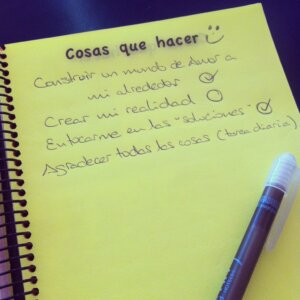 Cosas que hacer
Construir un mundo de Amor a
mi alrededor
Crear mi realidad
Enfocarme en las "soluciones"
Agradecer todas las cosas (tarea diaria)